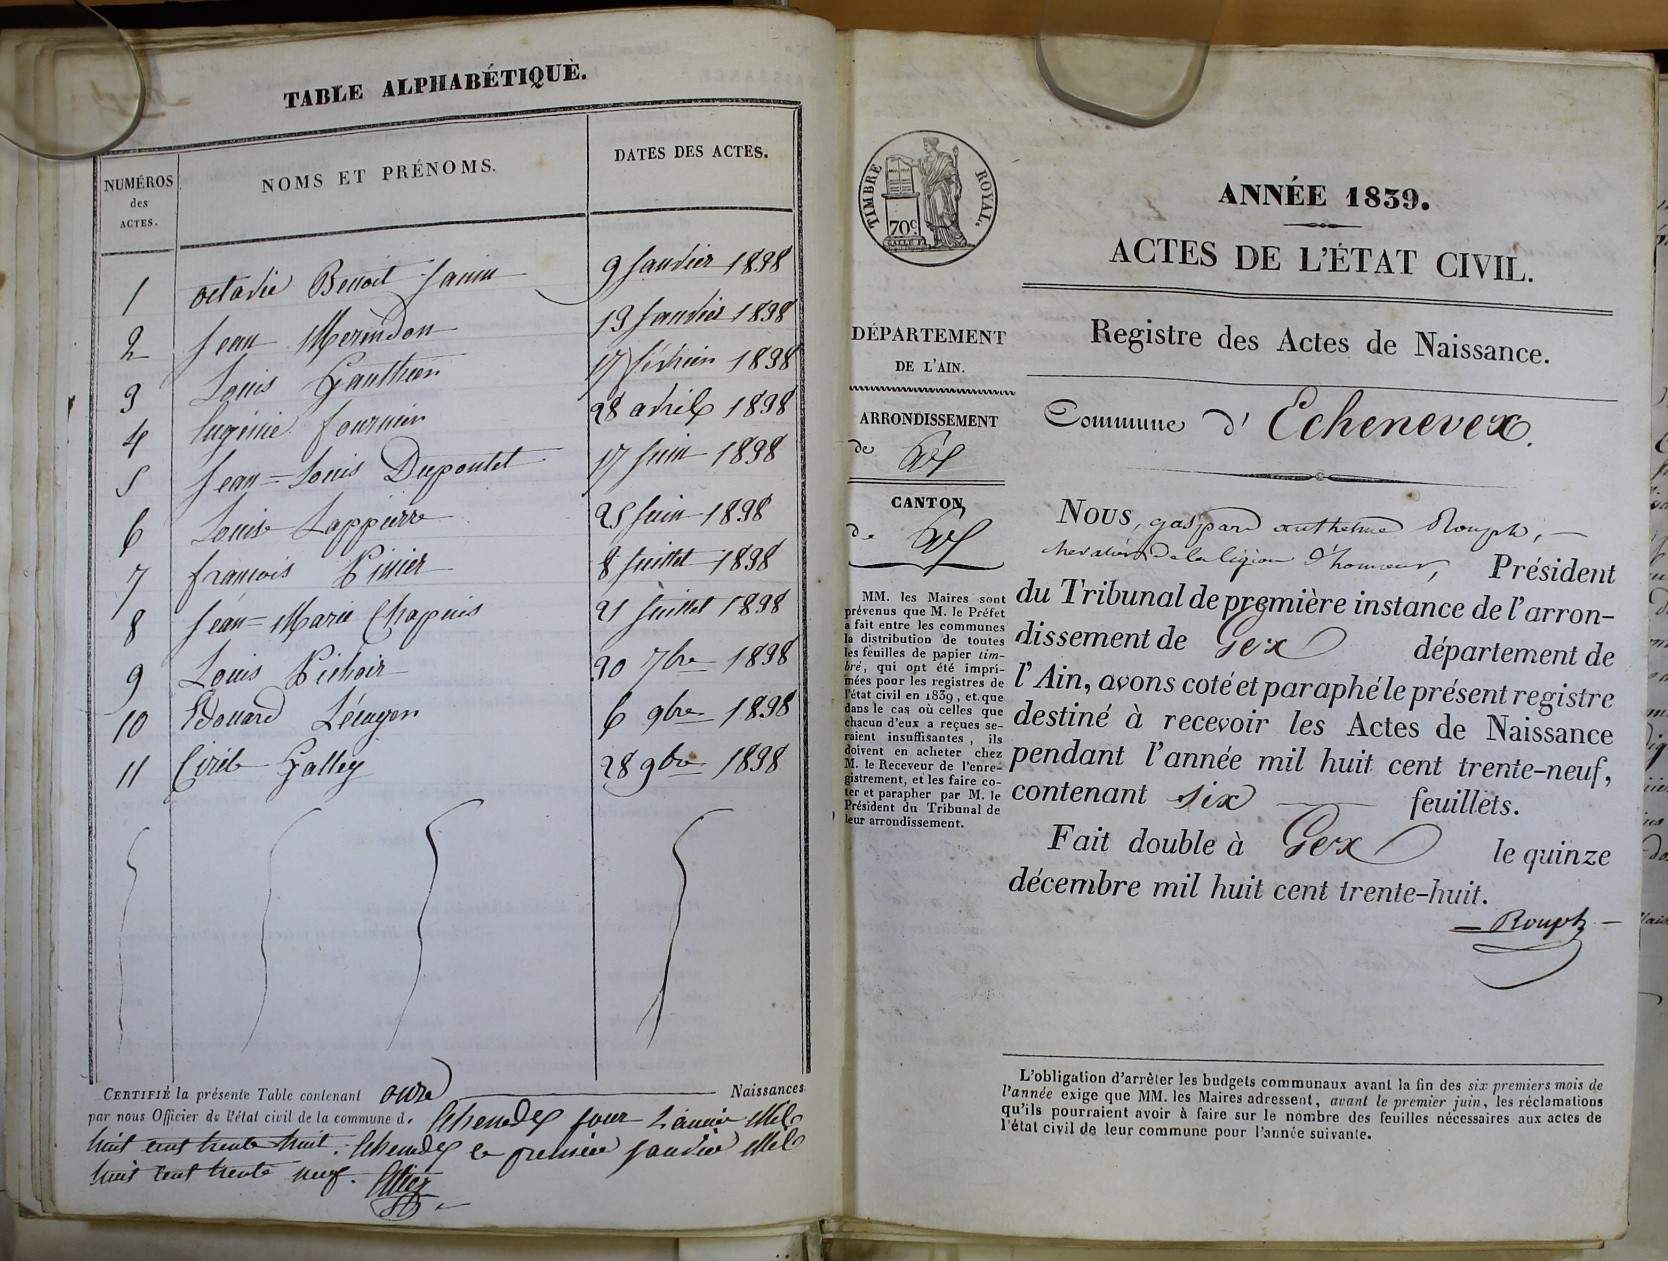 TABLE ALPHABÉTIQUE.
NUMÉROS
des
ACTES.
NOMS ET PRÉNOMS.
DATES DES ACTES.
1 octavie Benoit Janin 9 Janvier 1838
2 Jean Merindon 13 Janvier 1838
3 Louis Gauthier 17 février 1838
4 Eugénie fournier 28 avril 1838
5 Jean=Louis Dupontet 17 Juin 1838
6 Louise Lappierre 25 Juin 1838
7 françois Pinier 8 Juillet 1838
8 Jean=Marie Chapuis 21 Juillet 1838
9 Louis Pichoir 20 7bre 1838
10 Edouard Lécuyer 6 9bre 1838
11 Cirile Galley 28 9bre 1838
CERTIFIÉ la présente Table contenant onze Naissances
par nous Officier de l'état civil de la commune d' Echenevex pour L'année Mil
huit cent trente huit. Echenevex le premier Janvier Mil
huit cent trente neuf.
TIMBRE ROYAL.
70c
ANNÉE 1839.
ACTES DE L'ÉTAT CIVIL.
DÉPARTEMENT
DE L'AIN.
ARRONDISSEMENT
de Gex
CANTON
de Gex
MM. les Maires sont
prévenus que M. le Préfet
a fait entre les communes
la distribution de toutes
les feuilles de papier tim-
bré, qui ont été impri-
mées pour les registres de
l'état civil en 1839, et que
dans le cas où celles que
chacun d'eux a reçues se-
raient insuffisantes, ils
doivent en acheter chez
M. le Receveur de l'enre-
gistrement, et les faire co-
ter et parapher par M. le
Président du Tribunal de
leur arrondissement.
Registre des Actes de Naissance.
Commune d' Echenevex.
NOUS, gaspard anthelme Rouph,
chevalier de la légion d'honneur, Président
du Tribunal de première instance de l'arron-
dissement de Gex département de
l'Ain, avons coté et paraphé le présent registre
destiné à recevoir les Actes de Naissance
pendant l'année mil huit cent trente-neuf,
contenant six feuillets.
Fait double à Gex le quinze
décembre mil huit cent trente-huit.
Rouph
L'obligation d'arrêter les budgets communaux avant la fin des six premiers mois de
l'année exige que MM. les Maires adressent, avant le premier juin, les réclamations
qu'ils pourraient avoir à faire sur le nombre des feuilles nécessaires aux actes de
l'état civil de leur commune pour l'année suivante.